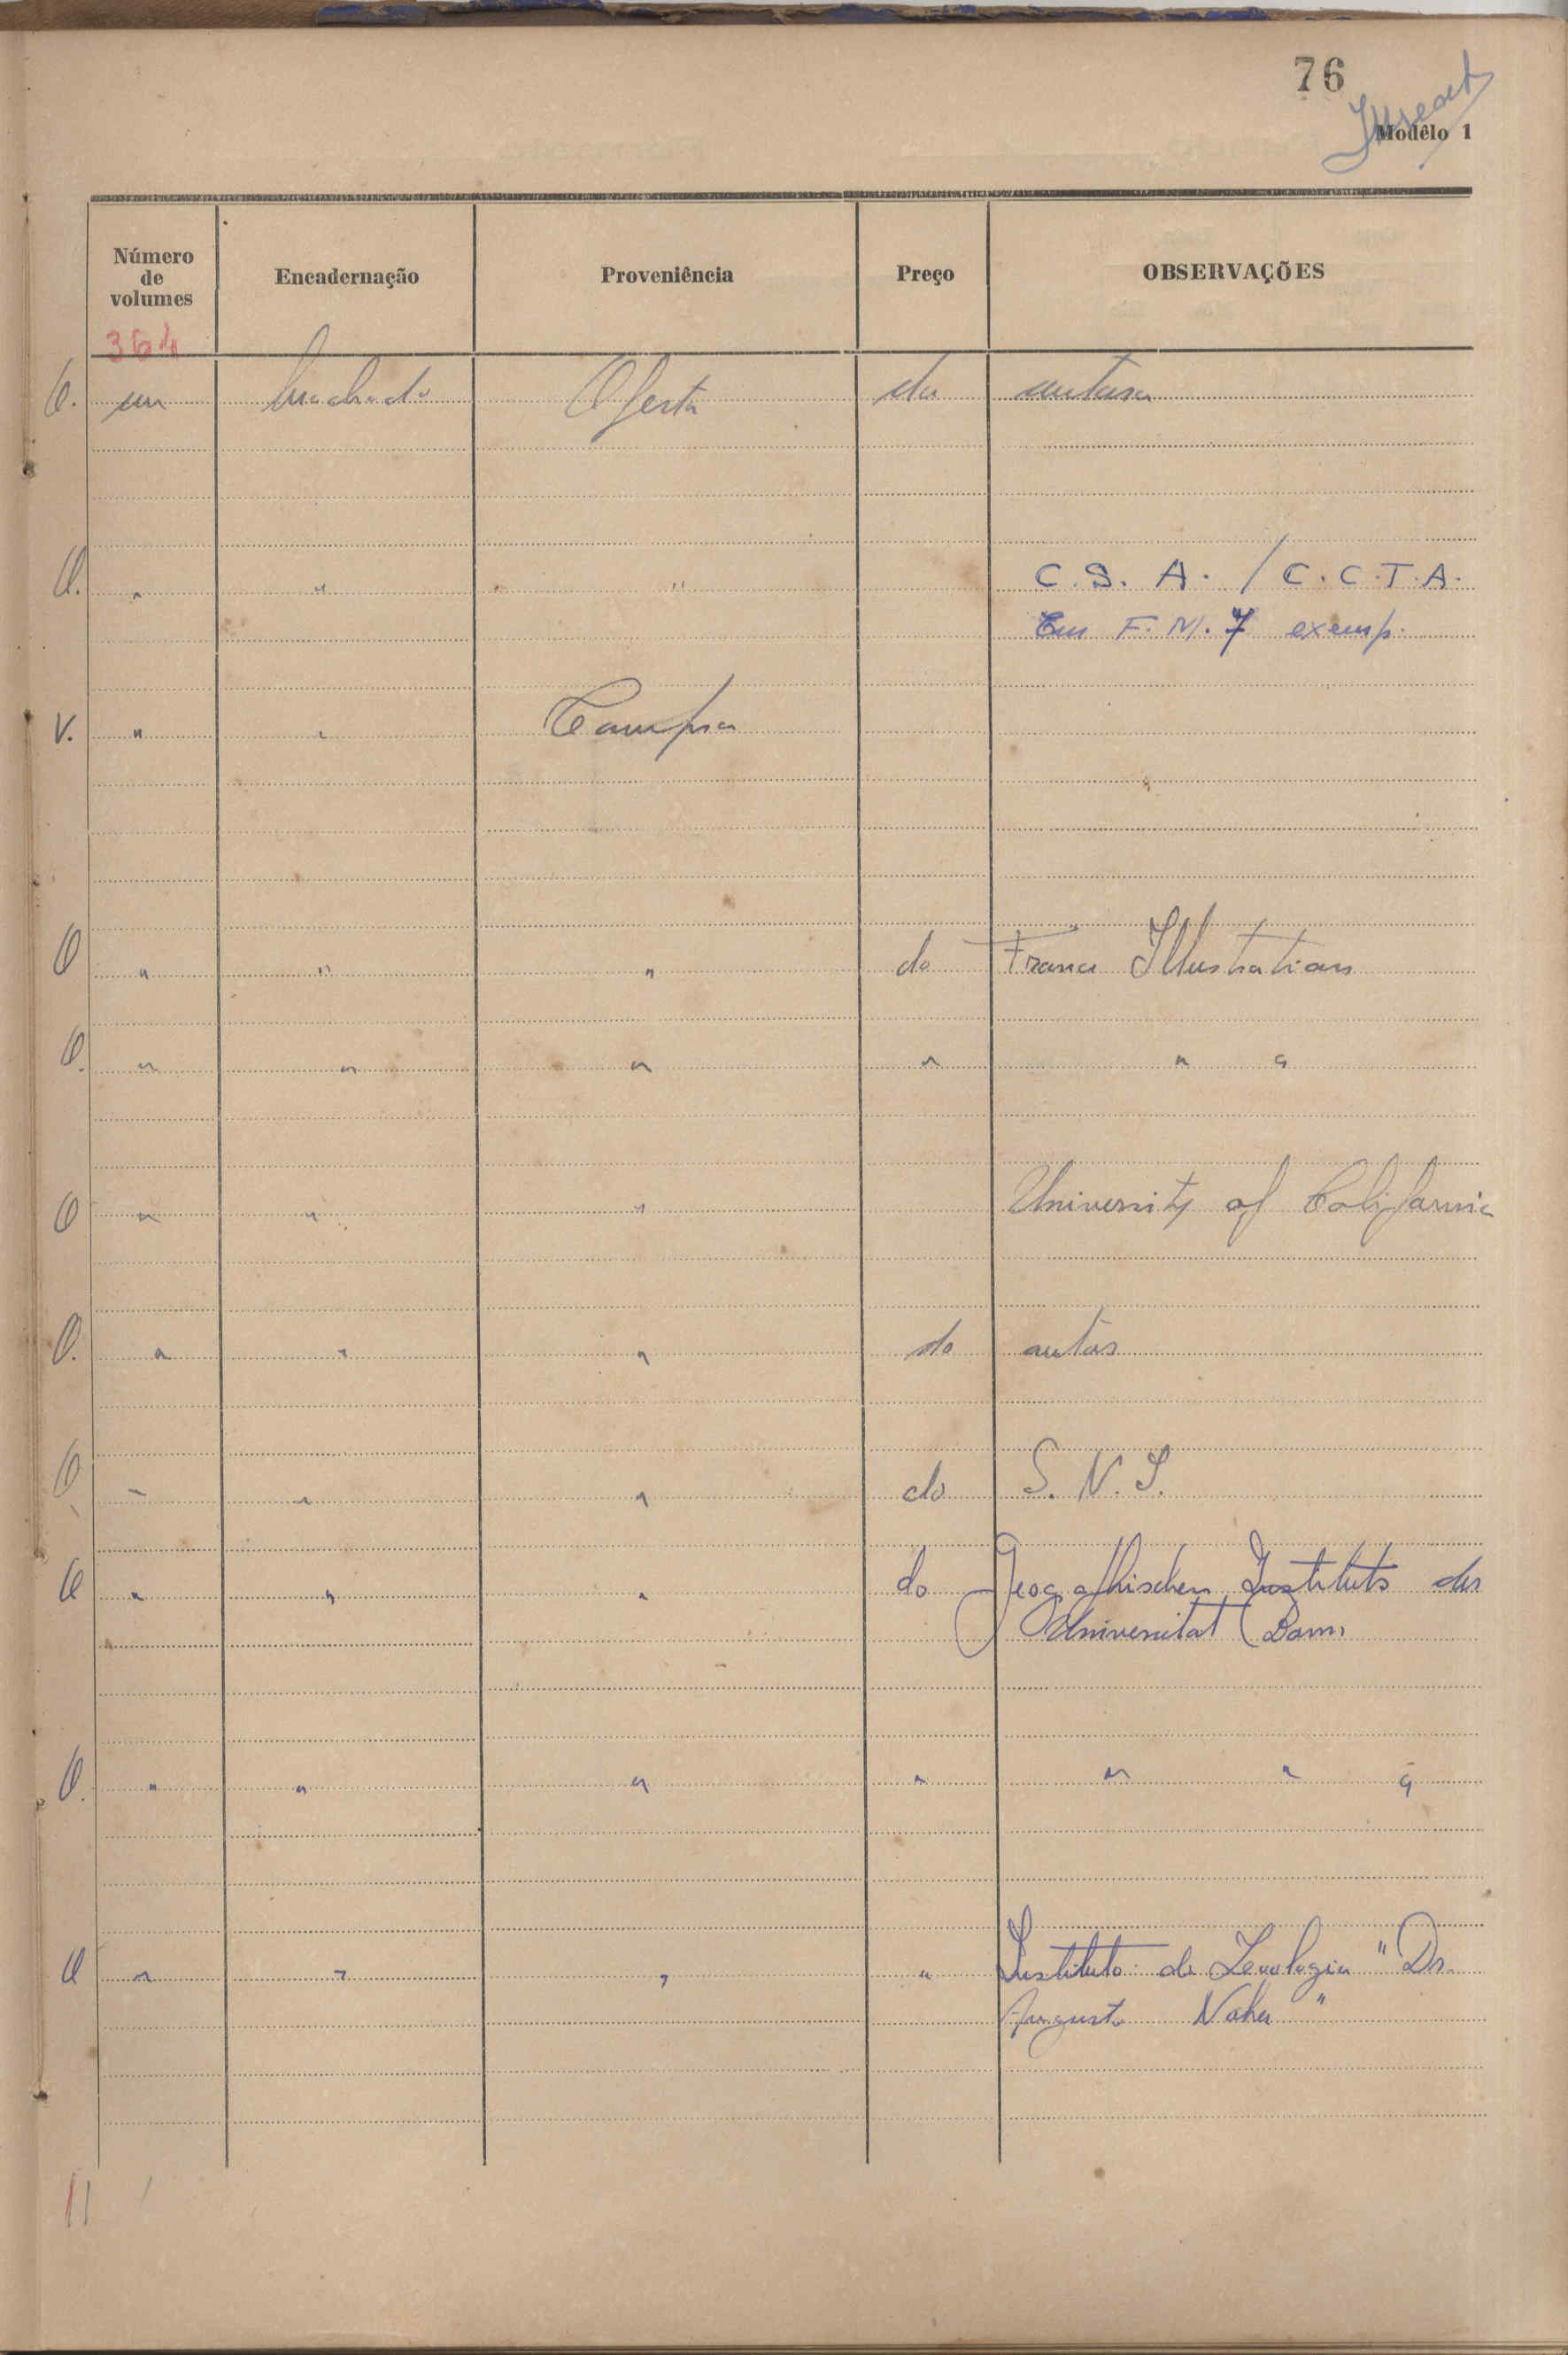 76
Modêlo 1
Número de volumes Encadernação Proveniência Preço OBSERVAÇÕES
364
O. um brochado Oferta da autora
O. " " " C.S.A. / C.C.T.A.
Em F.M. 7 exemp.
V. " " Compra
O " " " do France Illustration
O. " " " " " "
O " " " University of California
O. " " " do autor
O " " " do S. N. I.
O " " " do Geographischen Instituts der
Universitat Bonn
O. " " " " " " "
O " " " " Instituto de Zoologia "Dr.
Augusto Nobre"
11